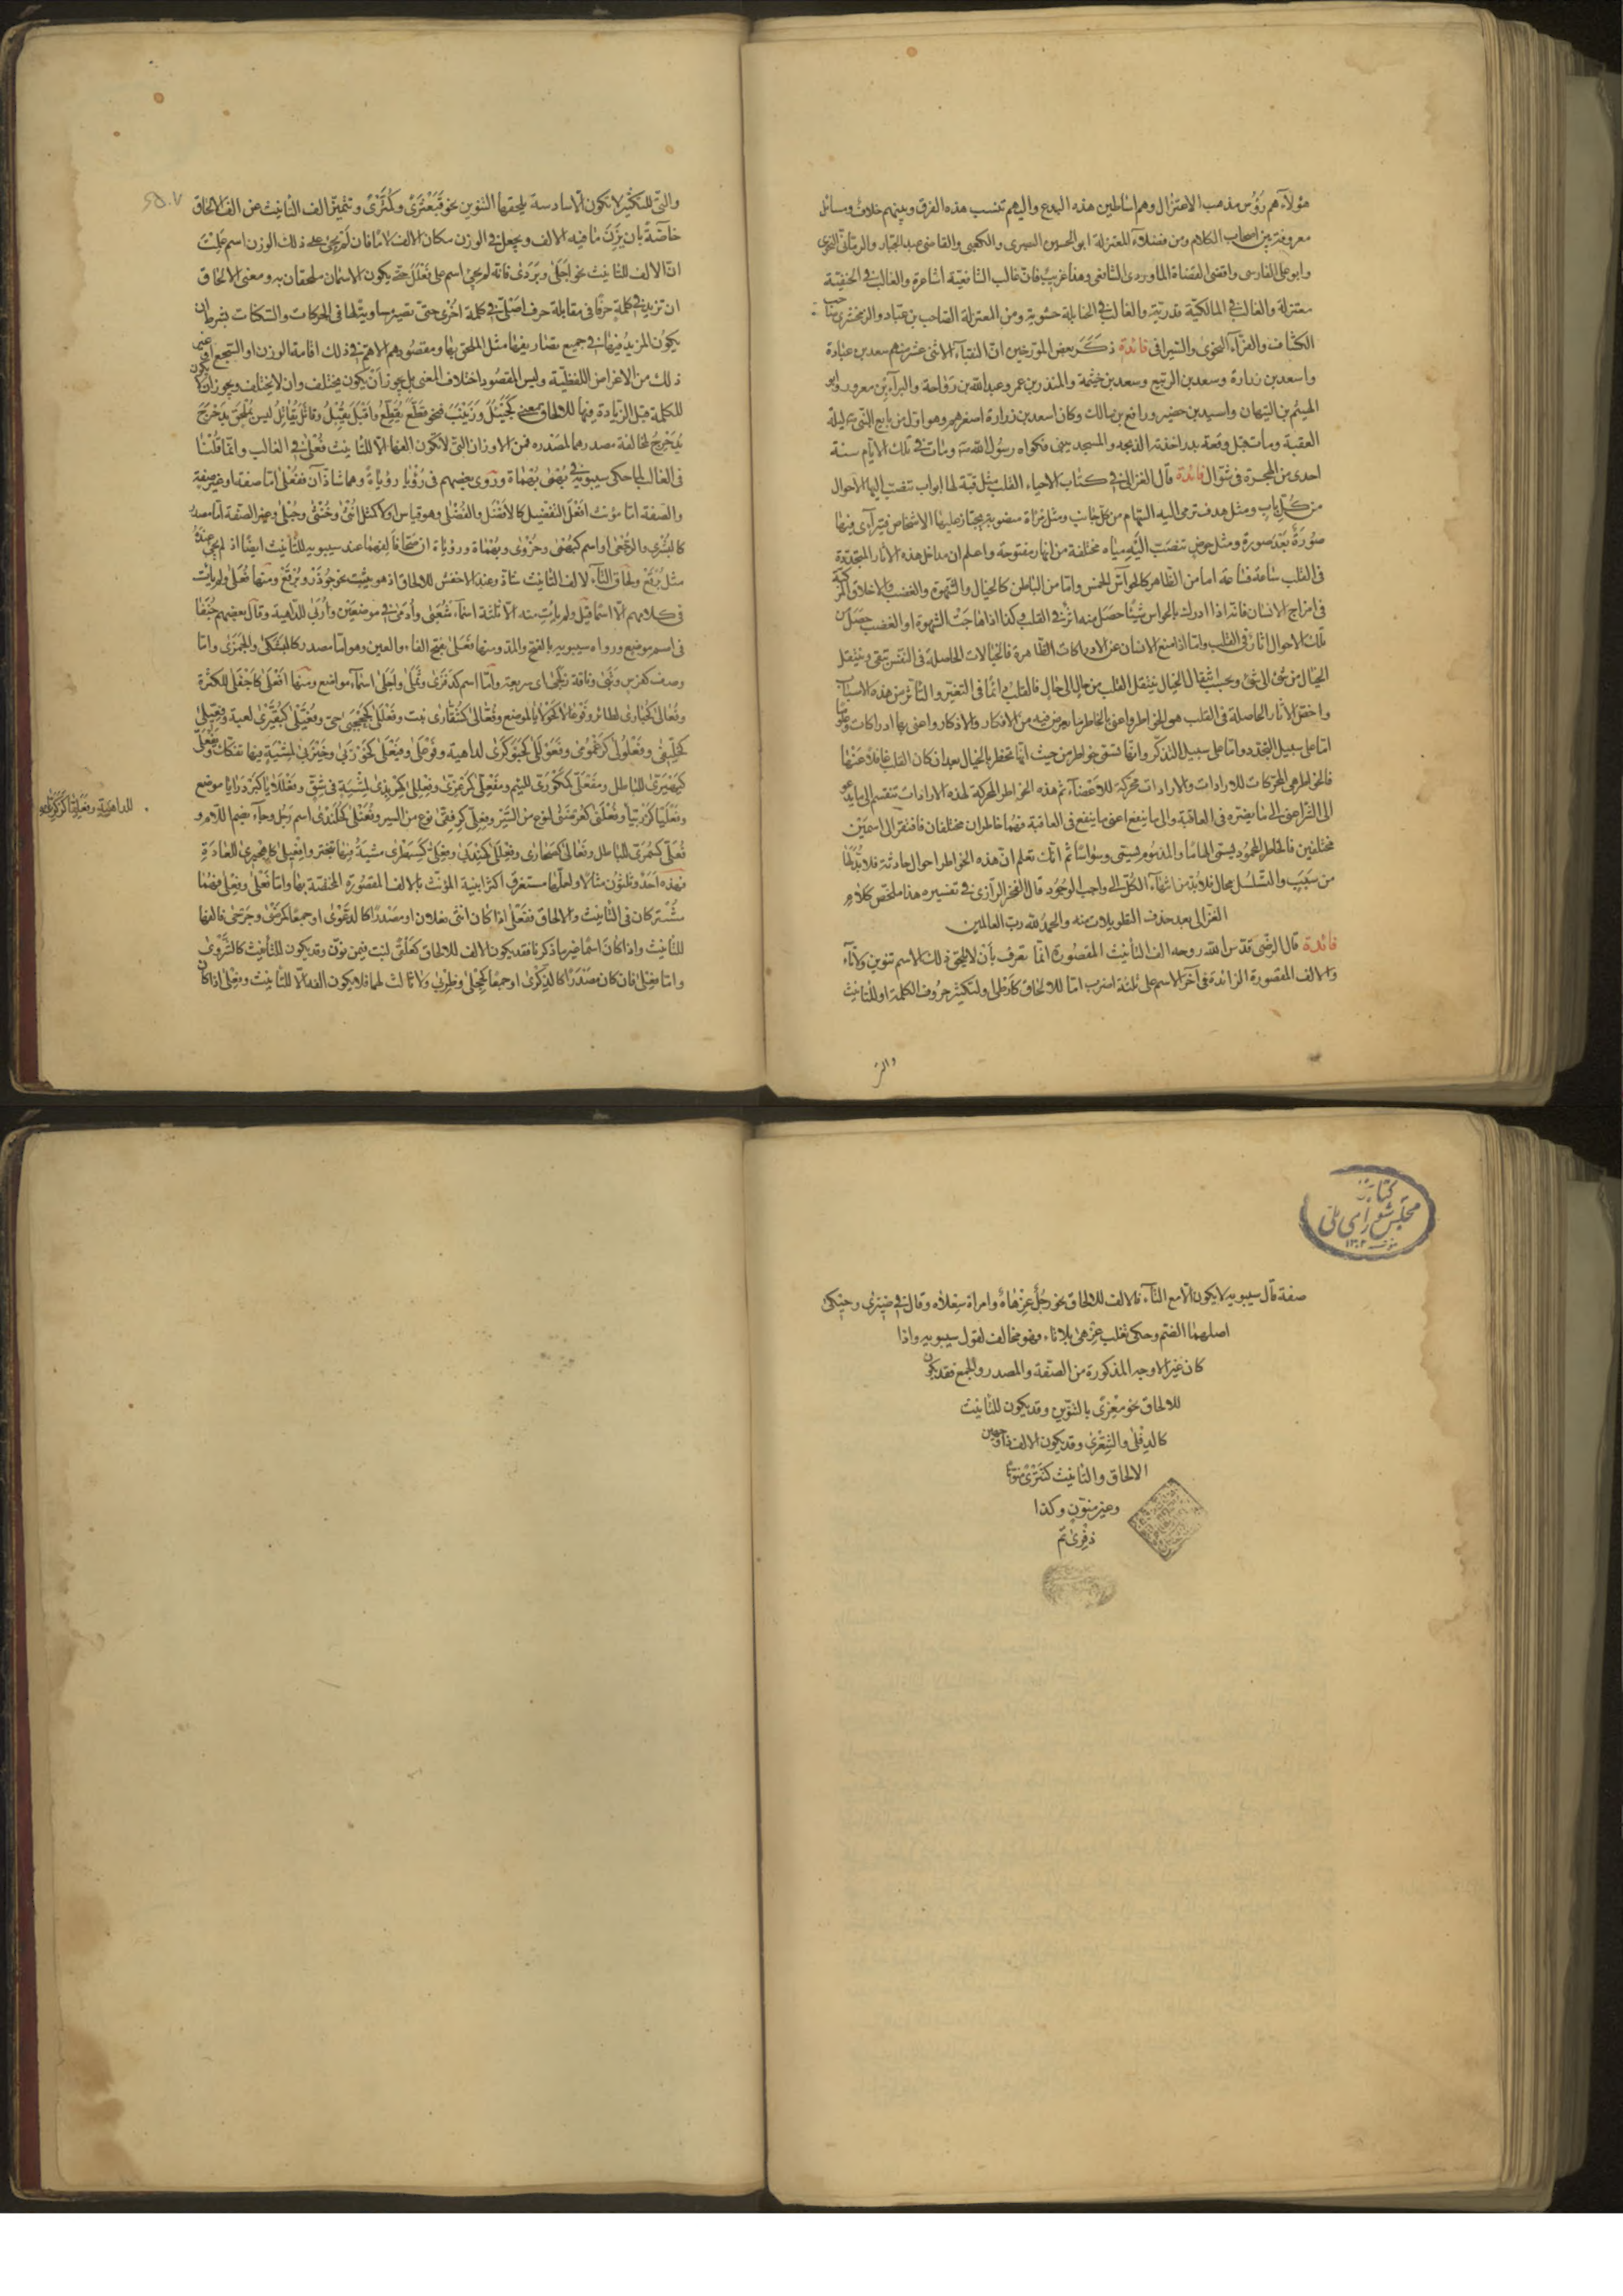 هؤلاء هم رؤس مذهب الاعتزال وهم اساطين هذه البدع واليهم تنسب هذه الفرق وبينهم خلاف ومسائل
معروفة بين اصحاب الكلام ومن فضلاء المعتزلة ابو الحسين البصرى والكعبى والقاضى عبد الجبار والرمانى النحوى
وابو على الفارسى واقضى القضاة الماوردى الشافعى وهذا غريب فان غالب الشافعية اشاعرة والغالب فى الحنفية
معتزلة والغالب فى المالكية قدرية والغالب فى الحنابلة حشوية ومن المعتزلة الصاحب بن عباد والزمخشرى صاحب
الكشاف والفراء النحوى والسيرافى فائدة ذكر بعض المورخين ان النقباء الاثنى عشر هم سعد بن عبادة
واسعد بن زرارة وسعد بن الربيع وسعد بن خيثمة والمنذر بن عمر وعبد الله بن رواحة والبراء بن معرور وابو
الهيثم بن التيهان واسيد بن حضير ورافع بن مالك وكان اسعد بن زرارة اصغرهم وهو اول من بايع النبى ليلة
العقبة ومات قبل وقعة بدر اخذته الذبحة والمسجد يبنى فكواه رسول الله ومات فى تلك الايام سنة
احدى من الهجرة فى شوال فائدة قال الغزالى فى كتاب الاحياء القلب مثل قبة لها ابواب تنصب اليها الاحوال
من كل باب ومثل هدف ترمى اليه السهام من كل جانب ومثل مرآة منصوبة يجتاز عليها الاشخاص فيتراءى فيها
صورة بعد صورة ومثل حوض تنصب اليه مياه مختلفة من انهار مفتوحة واعلم ان مداخل هذه الاثار المتجددة
فى القلب ساعة فساعة اما من الظاهر كالحواس الخمس واما من الباطن كالخيال والشهوة والغضب والاخلاق المركبة
فى مزاج الانسان فانه اذا ادرك بالحواس شيئا حصل منه اثر فى القلب وكذا اذا هاجت الشهوة او الغضب حصل من
تلك الاحوال آثار فى القلب واما اذا منع الانسان عن الادراكات الظاهرة فالخيالات الحاصلة فى النفس تبقى وينتقل
الخيال من شئ الى شئ وبحسب انتقال الخيال ينتقل القلب من حال الى حال فالقلب دائما فى التغير والتأثر من هذه الاسباب
واخص الاثار الحاصلة فى القلب هو الخواطر واعنى بالخاطر ما يعرض فيه من الافكار والاذكار واعنى بها ادراكات وعلوما
اما على سبيل التجدد واما على سبيل التذكر وانما تسمى خواطر من حيث انها تخطر بالخيال بعد ان كان القلب غافلا عنها
فالخواطر هى المحركات للارادات والارادات محركة للاعضاء ثم هذه الخواطر المحركة لهذه الارادات تنقسم الى ما يدعو
الى الشر اعنى الى ما يضر فى العاقبة والى ما ينفع اعنى ما ينفع فى العاقبة فهما خاطران مختلفان فافتقرا الى اسمين
مختلفين فالخاطر المحمود يسمى الهاما والمذموم يسمى وسواسا ثم انك تعلم ان هذه الخواطر احوال حادثة فلا بد لها
من سبب والتسلسل محال فلا بد من انتهاء الكل الى واجب الوجود قال الفخر الرازى فى تفسيره هذا ملخص كلام
الغزالى بعد حذف التطويلات منه والحمد لله رب العالمين
فائدة قال الرضى قدس الله روحه الف التأنيث المقصورة انما تعرف بأن لا يلحق ذلك الاسم تنوين ولا تاء
والالف المقصورة الزائدة فى آخر الاسم على ثلثة اضرب اما للالحاق كأرطى او لتكثير حروف الكلمة او للتأنيث
والتى للتكثير لا تكون الا سادسة يلحقها التنوين نحو قبعثرى وكمثرى وتتميز الف التأنيث عن الف الالحاق
خاصة بان يزن ما فيه الالف ويجعل فى الوزن مكان الالف لاما فان لم يجئ على ذلك الوزن اسم علمت
ان الالف للتأنيث نحو اجلى وبردى فانه لم يجئ اسم على فعلل حتى يكون الاسمان ملحقان به ومعنى الالحاق
ان تزيد فى كلمة حرفا فى مقابلة حرف اصلى فى كلمة اخرى حتى تصير مساوية لها فى الحركات والسكنات بشرط ان
يكون المزيد فيها فى جميع تصاريفها مثل الملحق بها ومقصودهم الاهم فى ذلك اقامة الوزن او السجع او غير
ذلك من الاغراض اللفظية وليس المقصود اختلاف المعنى بل يجوز أن يكون يختلف وان لا يختلف ويجوز ان لا يكون
للكلمة قبل الزيادة فيها للالحاق معنى كجيئل وزينب فنحو قطع يقطع واقبل يقبل وقاتل يقاتل ليس بملحق بدحرج
يدحرج لمخالفة مصدرهما لمصدره فمن الاوزان التى لا تكون الفها الا للتأنيث فعلى فى الغالب وانما قلنا
فى الغالب لما حكى سيبويه فى بهمى بهماة وروى بعضهم فى رؤيا رؤياة وهما شاذان ففعلى اما صفة او غير صفة
والصفة اما مؤنث افعل التفضيل كالافضل والفضلى وهو قياس او لا كمثل انثى وخنثى وحبلى وغير الصفة اما مصدر
كالبشرى والرجعى او اسم كبهمى وحزوى وبهماة ورؤياة ان صحا فالفهما عند سيبويه للتأنيث ايضا اذ لم يجئ عنده
مثل برقع ولحاق التاء لالف التأنيث شاذ وعند الاخفش للالحاق اذ هو يثبت نحو جؤذر وبرقع ومنها فعلى ولم يأت
فى كلامهم الا اسما قيل ولم يأت منه الا ثلثة اسماء شعبى وأدمى فى موضعين وأربى للداهية وقال بعضهم جنفا
فى اسم موضع ورواه سيبويه بالفتح والمد ومنها فعلى بفتح الفاء والعين وهو اما مصدر كالبشكى والجمزى واما
وصف كفرس وثبى وناقة زلجى اى سريعة واما اسم كدقرى ونملى واجلى اسماء مواضع ومنها افعلى كاجفلى للكثرة
فهذه احد وثلثون مثالا ولعلها مستغرق اكثر ابنية المؤنث بالالف المقصورة المختصة بها واما فعلى وفعلى فهما
مشتركان فى التأنيث والالحاق ففعلى اذا كان انثى فعلان او مصدرا كالدعوى او جمعا كمرضى وجرحى فالفها
للتأنيث واذا كان اسما غير ما ذكرنا فقد يكون الالف للالحاق كعلقى لنبت فيمن نون وقد يكون للتأنيث كالشروى
واما فعلى فان كان مصدرا كالذكرى او جمعا كحجلى وظربى ولا ثالث لهما فلا يكون الفه الا للتأنيث وفعلى اذا كان
صفة قال سيبويه لا يكون الا مع التاء فالالف للالحاق نحو رجل عزهاة وامراة سعلاة وقال فى ضيزى وحيكى
اصلهما الضم وحكى ثعلب عزهى بلا تاء وهو مخالف لقول سيبويه واذا
كان غير الاوجه المذكورة من الصفة والمصدر والجمع فقد يكون
للالحاق نحو معزى بالتنوين وقد يكون للتأنيث
كالدفلى والشعرى وقد يكون الالف ذا وجهين
الالحاق والتأنيث كتترى منونا
وغير منون وكذا
ذفرى تم
كتابخانه
مجلس شوراى ملى